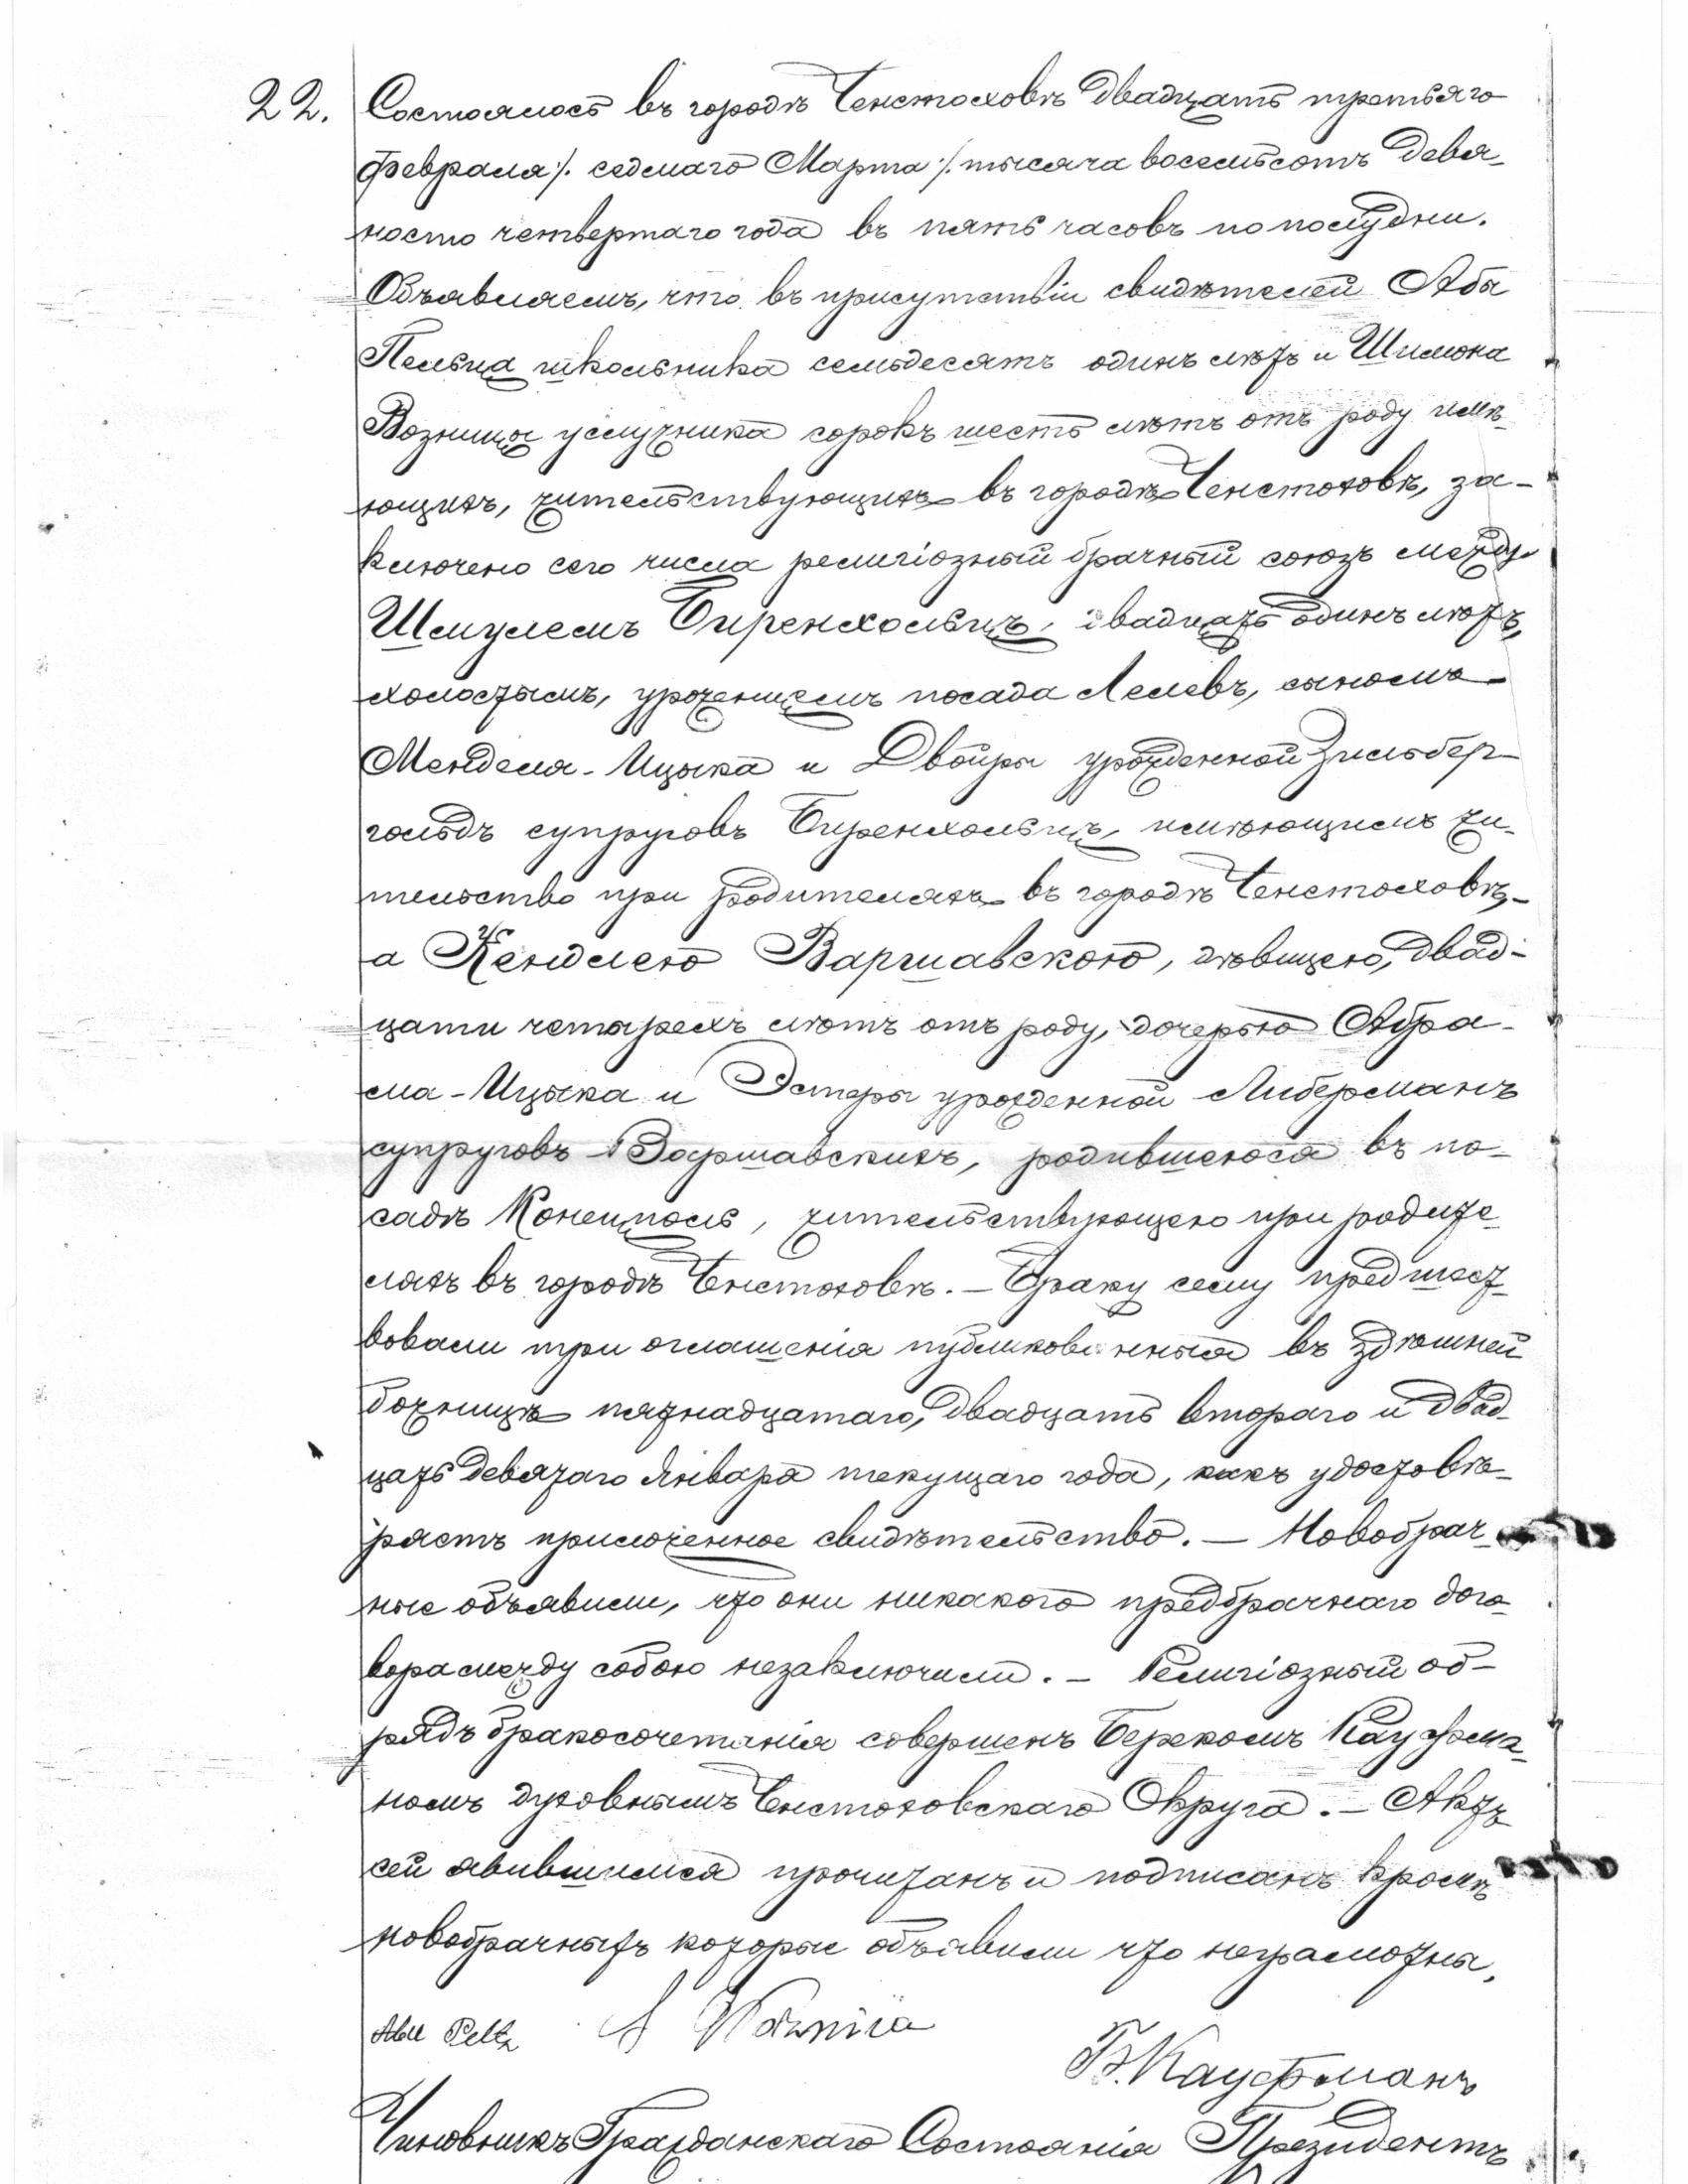 22. Состоялось въ городѣ Ченстоховѣ двадцать третьяго
Февраля /. седмаго Марта /. тысяча восемьсотъ девя-
носто четвертаго года въ пять часовъ по полудни.
Объявляемъ, что въ присутствіи свидѣтелей Абы
Пельца школьника семьдесятъ одинъ лѣтъ и Шимона
Возницы услужника сорокъ шесть лѣтъ отъ роду имѣ-
ющихъ, жительствующихъ въ городѣ Ченстоховѣ, за-
ключено сего числа религіозный брачный союзъ между
Шмулемъ Биренхольцъ, двадцать одинъ лѣтъ,
холостымъ, уроженцемъ посада Лелевъ, сыномъ
Менделя-Ицыка и Двойры урожденной Зильбер-
гольдъ супруговъ Биренхольцъ, имѣющимъ жи-
тельство при родителяхъ въ городѣ Ченстоховѣ,-
а Кендлею Варшавскою, дѣвицею, двад-
цати четырехъ лѣтъ отъ роду, дочерью Абра-
ма-Ицыка и Эстеры урожденной Либерманъ
супруговъ Варшавскихъ, родившеюся въ по-
садѣ Конецполь, жительствующею при родите-
ляхъ въ городѣ Ченстоховѣ. - Браку сему предшест-
вовали три оглашенія публикованныя въ здѣшней
божницѣ пятнадцатаго, двадцать втораго и двад-
цать девятаго Января текущаго года, какъ удостовѣ-
ряетъ приложенное свидѣтельство. — Новобрач-
ные объявили, что они никакого предбрачнаго дого-
вора между собою незаключили. - Религіозный об-
рядъ бракосочетанія совершенъ Берекомъ Кауфма-
номъ духовнымъ Ченстоховскаго Округа. - Актъ
сей явившимся прочитанъ и подписанъ кромѣ
новобрачныхъ которые объявили что неграмотны.
Abu Peltz S Woznica
Б. Кауфманъ
Чиновникъ Гражданскаго Состоянія Президентъ